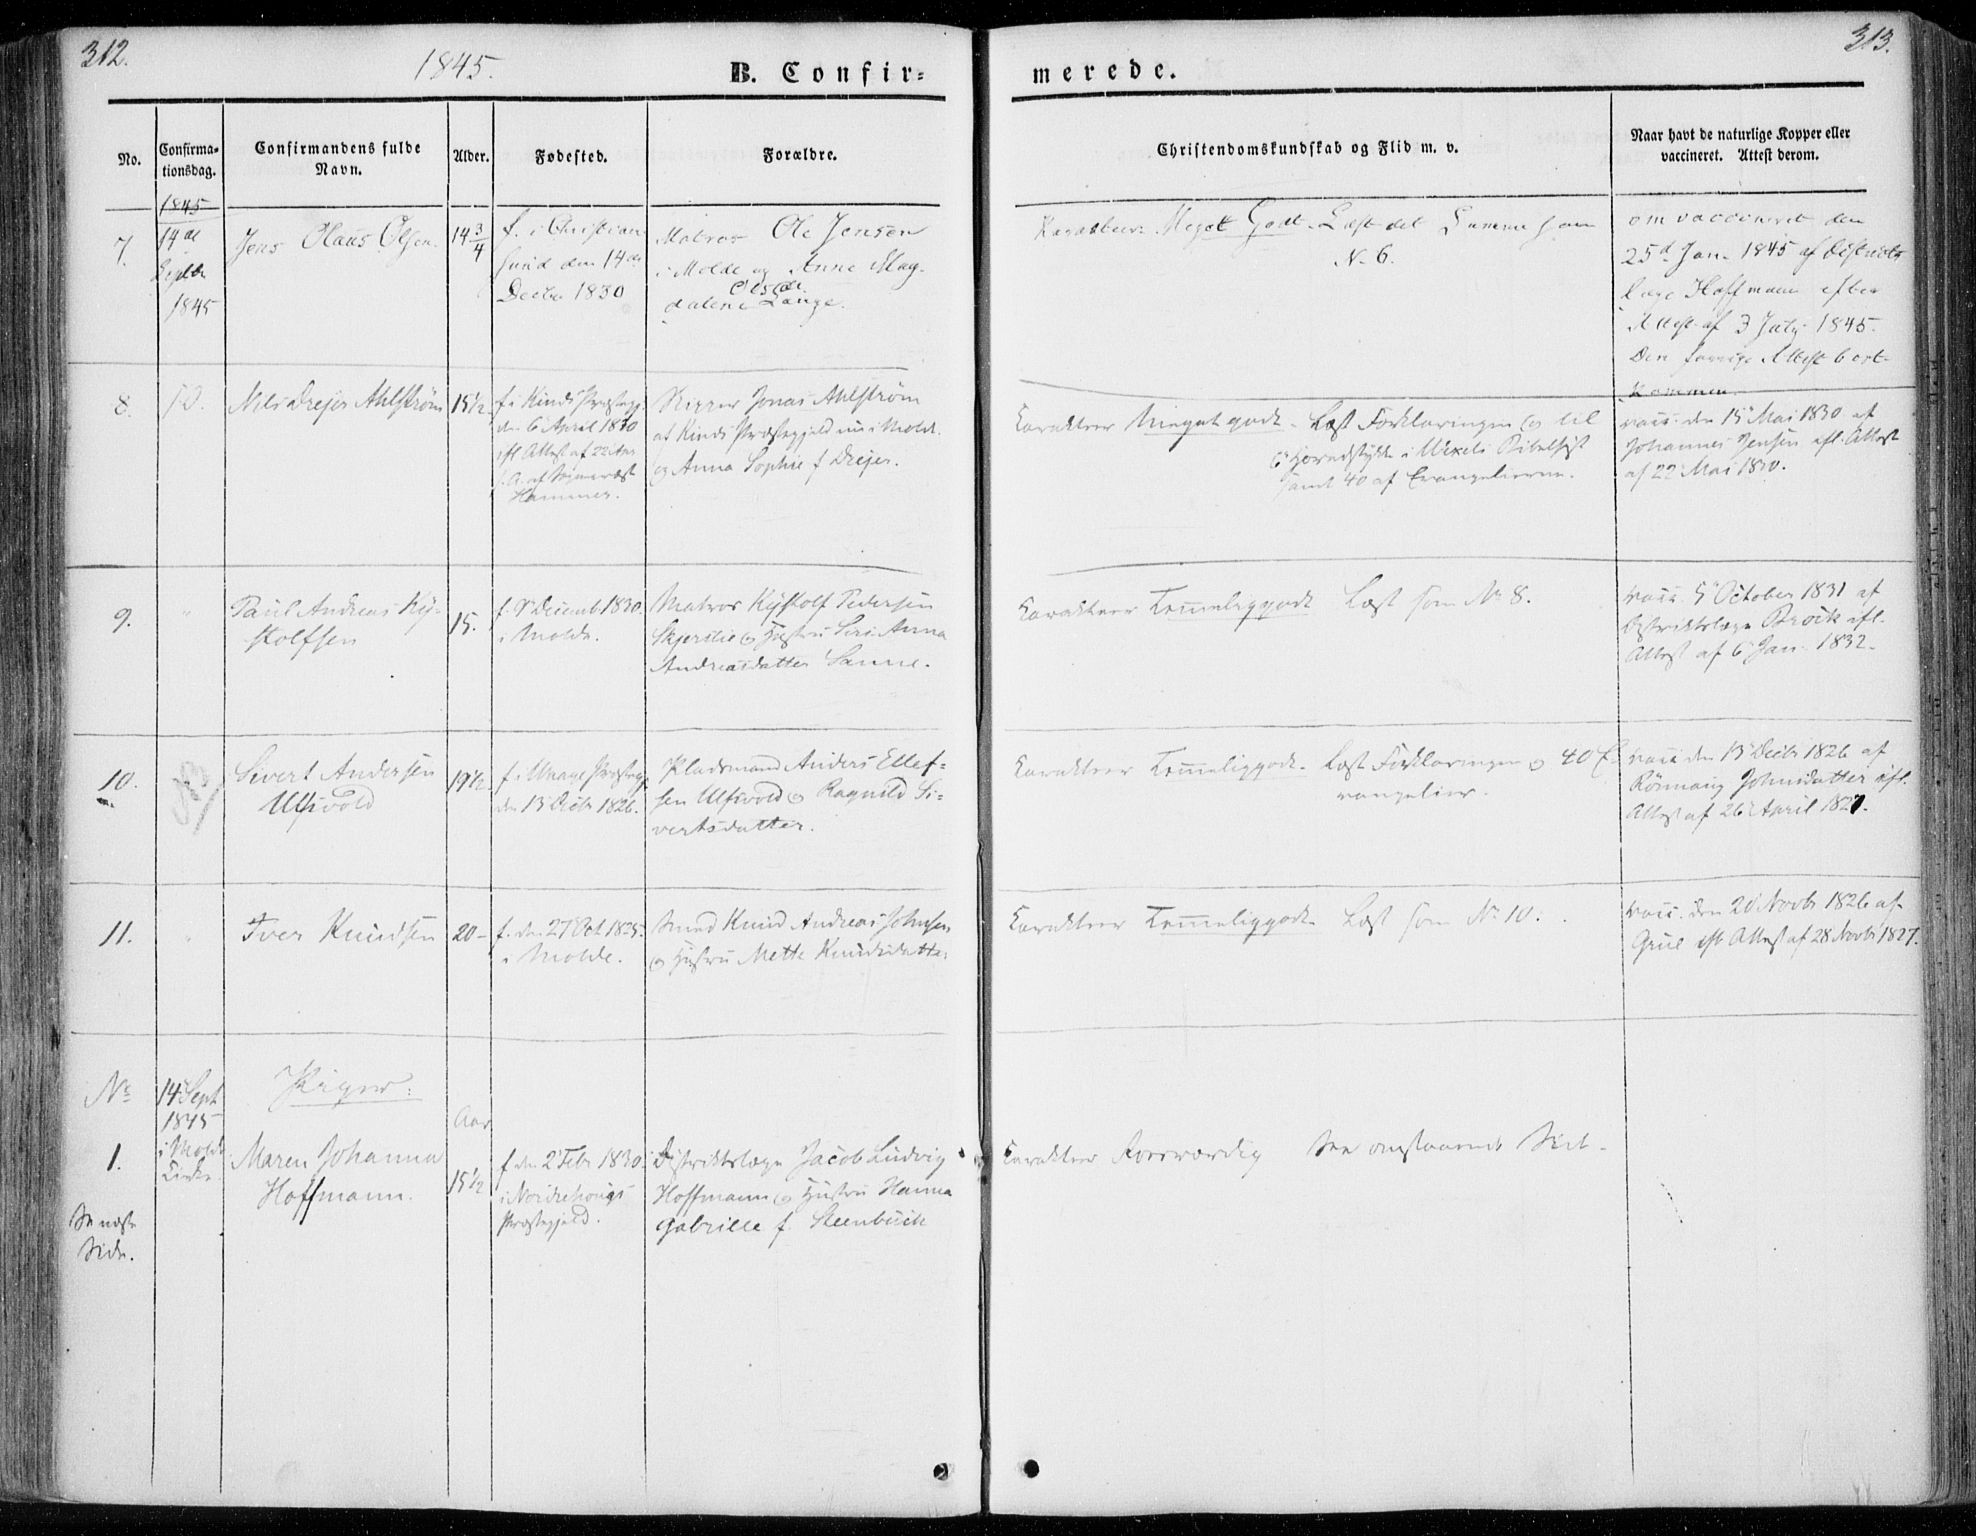 312.
1845.
B. Confir=
merede.
313.
No.
Confirma-
tionsdag.
Confirmandens fulde
Navn.
Alder.
Fødested.
Forældre.
Christendomskundskab og Flid m. v.
Naar havt de naturlige Kopper eller
vaccineret. Attest derom.
1845
7.
14de
Septbr
1845
Jens Olaus Olsen.
14 3/4
f. i Christian
sund den 14de
Decbr 1830
Matros Ole Jensen
i Molde og Anne Mag-
dalene Lange.
Karakteer Meget Godt. Læst det Samme som
N. 6.
om vaccineret den
25d Jan. 1845 af Districts
læge Hoffmann efter
Attest af 3 July 1845.
Den forrige Attest bort-
kommen.
8.
Nils Drejer Ahlstrøm
15 1/2
f. i Kinds Præstegj.
den 6 April 1830
ifl. Attest af 22 Apr
Hammer.
Skipper Jonas Ahlstrøm
af Kinds Præstegjeld nu i Molde
og Anna Sophie f. Drejer.
Karakteer Meget godt. Læst Forklaringen og til
6te Hovedstykke i Wexels Bibelhist
samt 40 af Evangelierne.
vacc. den 15 Mai 1830 af
Johannes Jensen ifl. Attest
af 22 Mai 1830.
9.
"
Paul Andreas Ky-
stolfsen
15.
f. 8 Decemb 1830.
i Molde.
Matros Kystolf Pedersen
Skjerslie og Hustru Siri Anna
Andreasdatter Sanne.
Karakteer Temmeliggodt Læst som No 8.
vacc. 5 October 1831 af
Distriktslæge Brock ifl.
Attest af 6 Jan. 1832.
10.
Sivert Andersen
Ulfsvold
19 1/2
f. i Vaage Præstegj.
den 13 Decbr 1826.
Pladsmand Anders Ellef-
sen Ulfsvold og Ragnild Si-
vertsdatter.
Karakteer Temmeliggodt. Læst Forklaringen og 40 E-
vangelier.
vacc den 13 Decbr 1826 af
Rønnaug Johnsdatter ifl.
Attest af 26 April 1827.
11.
"
Iver Knudsen
20-
f. den 27 Oct 1825.
i Molde.
Knud Andreas Johnsen
og Hustru Mette Knudsdatter
Karakteer Temmeliggodt. Læst som No 10.
vacc. den 20 Novbr 1826 af
ifl. Attest af 28 Novbr 1827.
No
14 Sept
1845
i Molde
Kirke
Piger.
Aar
1.
Maren Johanna
Hoffmann.
15 1/2
f. den 2 Febr 1830.
i Norderhougs
Præstegjeld.
Distriktslæge Jacob Ludvig
Hoffmann og Hustru Hanna
Gabrielle f. Steenbuck
Karakteer Roesværdig See omstaaende Side.
Se næste
Side.